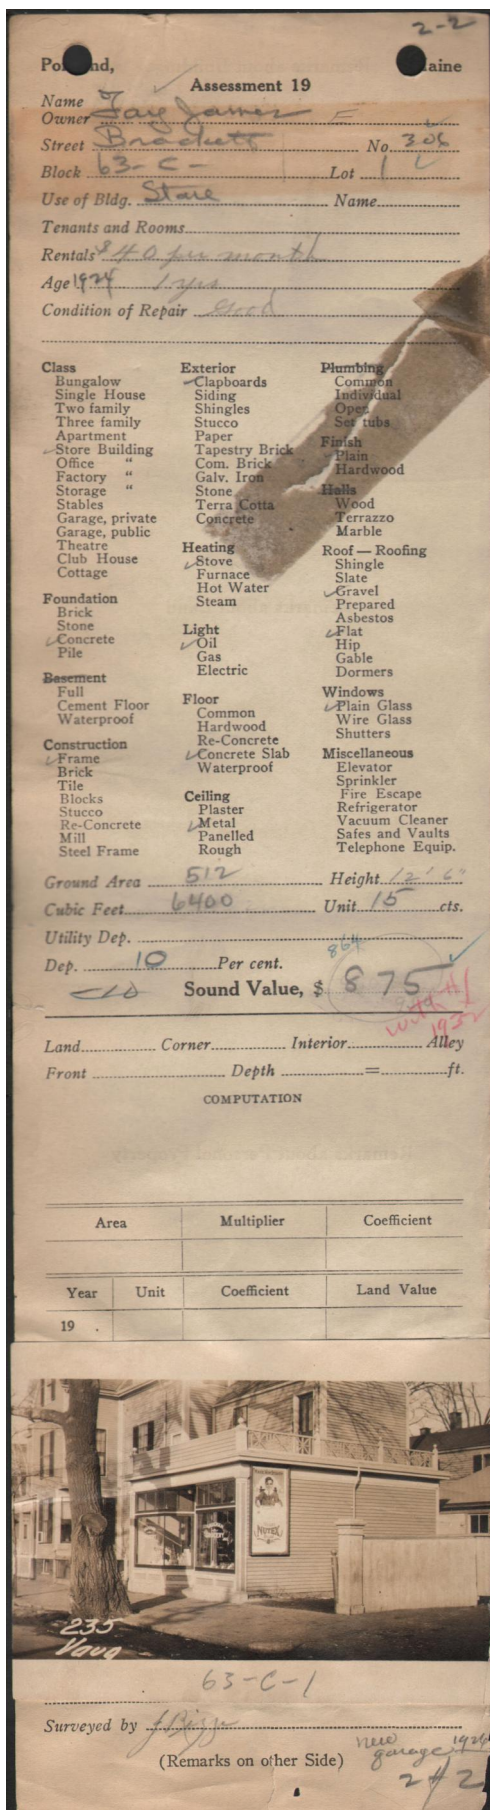 2-2
Portland, Maine
Assessment 19
Name
Owner Fay James F
Street Brackett No. 306
Block 63-C- Lot 1
Use of Bldg. Store Name
Tenants and Rooms
Rentals $40 per month
Age 1924 1 yrs
Condition of Repair Good
Class
Bungalow
Single House
Two family
Three family
Apartment
✓Store Building
Office "
Factory "
Storage "
Stables
Garage, private
Garage, public
Theatre
Club House
Cottage
Foundation
Brick
Stone
✓Concrete
Pile
Basement
Full
Cement Floor
Waterproof
Construction
✓Frame
Brick
Tile
Blocks
Stucco
Re-Concrete
Mill
Steel Frame
Exterior
✓Clapboards
Siding
Shingles
Stucco
Paper
Tapestry Brick
Com. Brick
Galv. Iron
Stone
Terra Cotta
Concrete
Heating
✓Stove
Furnace
Hot Water
Steam
Light
✓Oil
Gas
Electric
Floor
Common
Hardwood
Re-Concrete
✓Concrete Slab
Waterproof
Ceiling
Plaster
✓Metal
Panelled
Rough
Plumbing
Common
Individual
Open
Set tubs
Finish
✓Plain
Hardwood
Halls
Wood
Terrazzo
Marble
Roof — Roofing
Shingle
Slate
✓Gravel
Prepared
Asbestos
✓Flat
Hip
Gable
Dormers
Windows
✓Plain Glass
Wire Glass
Shutters
Miscellaneous
Elevator
Sprinkler
Fire Escape
Refrigerator
Vacuum Cleaner
Safes and Vaults
Telephone Equip.
Ground Area 512 Height 12' 6"
Cubic Feet 6400 Unit 15 cts.
Utility Dep.
864
Dep. 10 Per cent.
Sound Value, $ 875
with #1
1932
Land Corner Interior Alley
Front Depth = ft.
COMPUTATION
Area Multiplier Coefficient
Year Unit Coefficient Land Value
19 .
NUTEX
235
Vaug
63-C-1
Surveyed by
(Remarks on other Side)
new 1924
garage
2 + 2